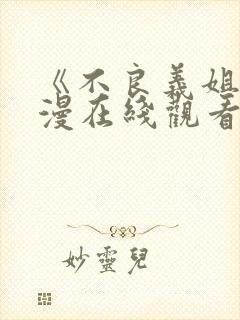 《不良義姐
漫在綫觀看
妙靈兒